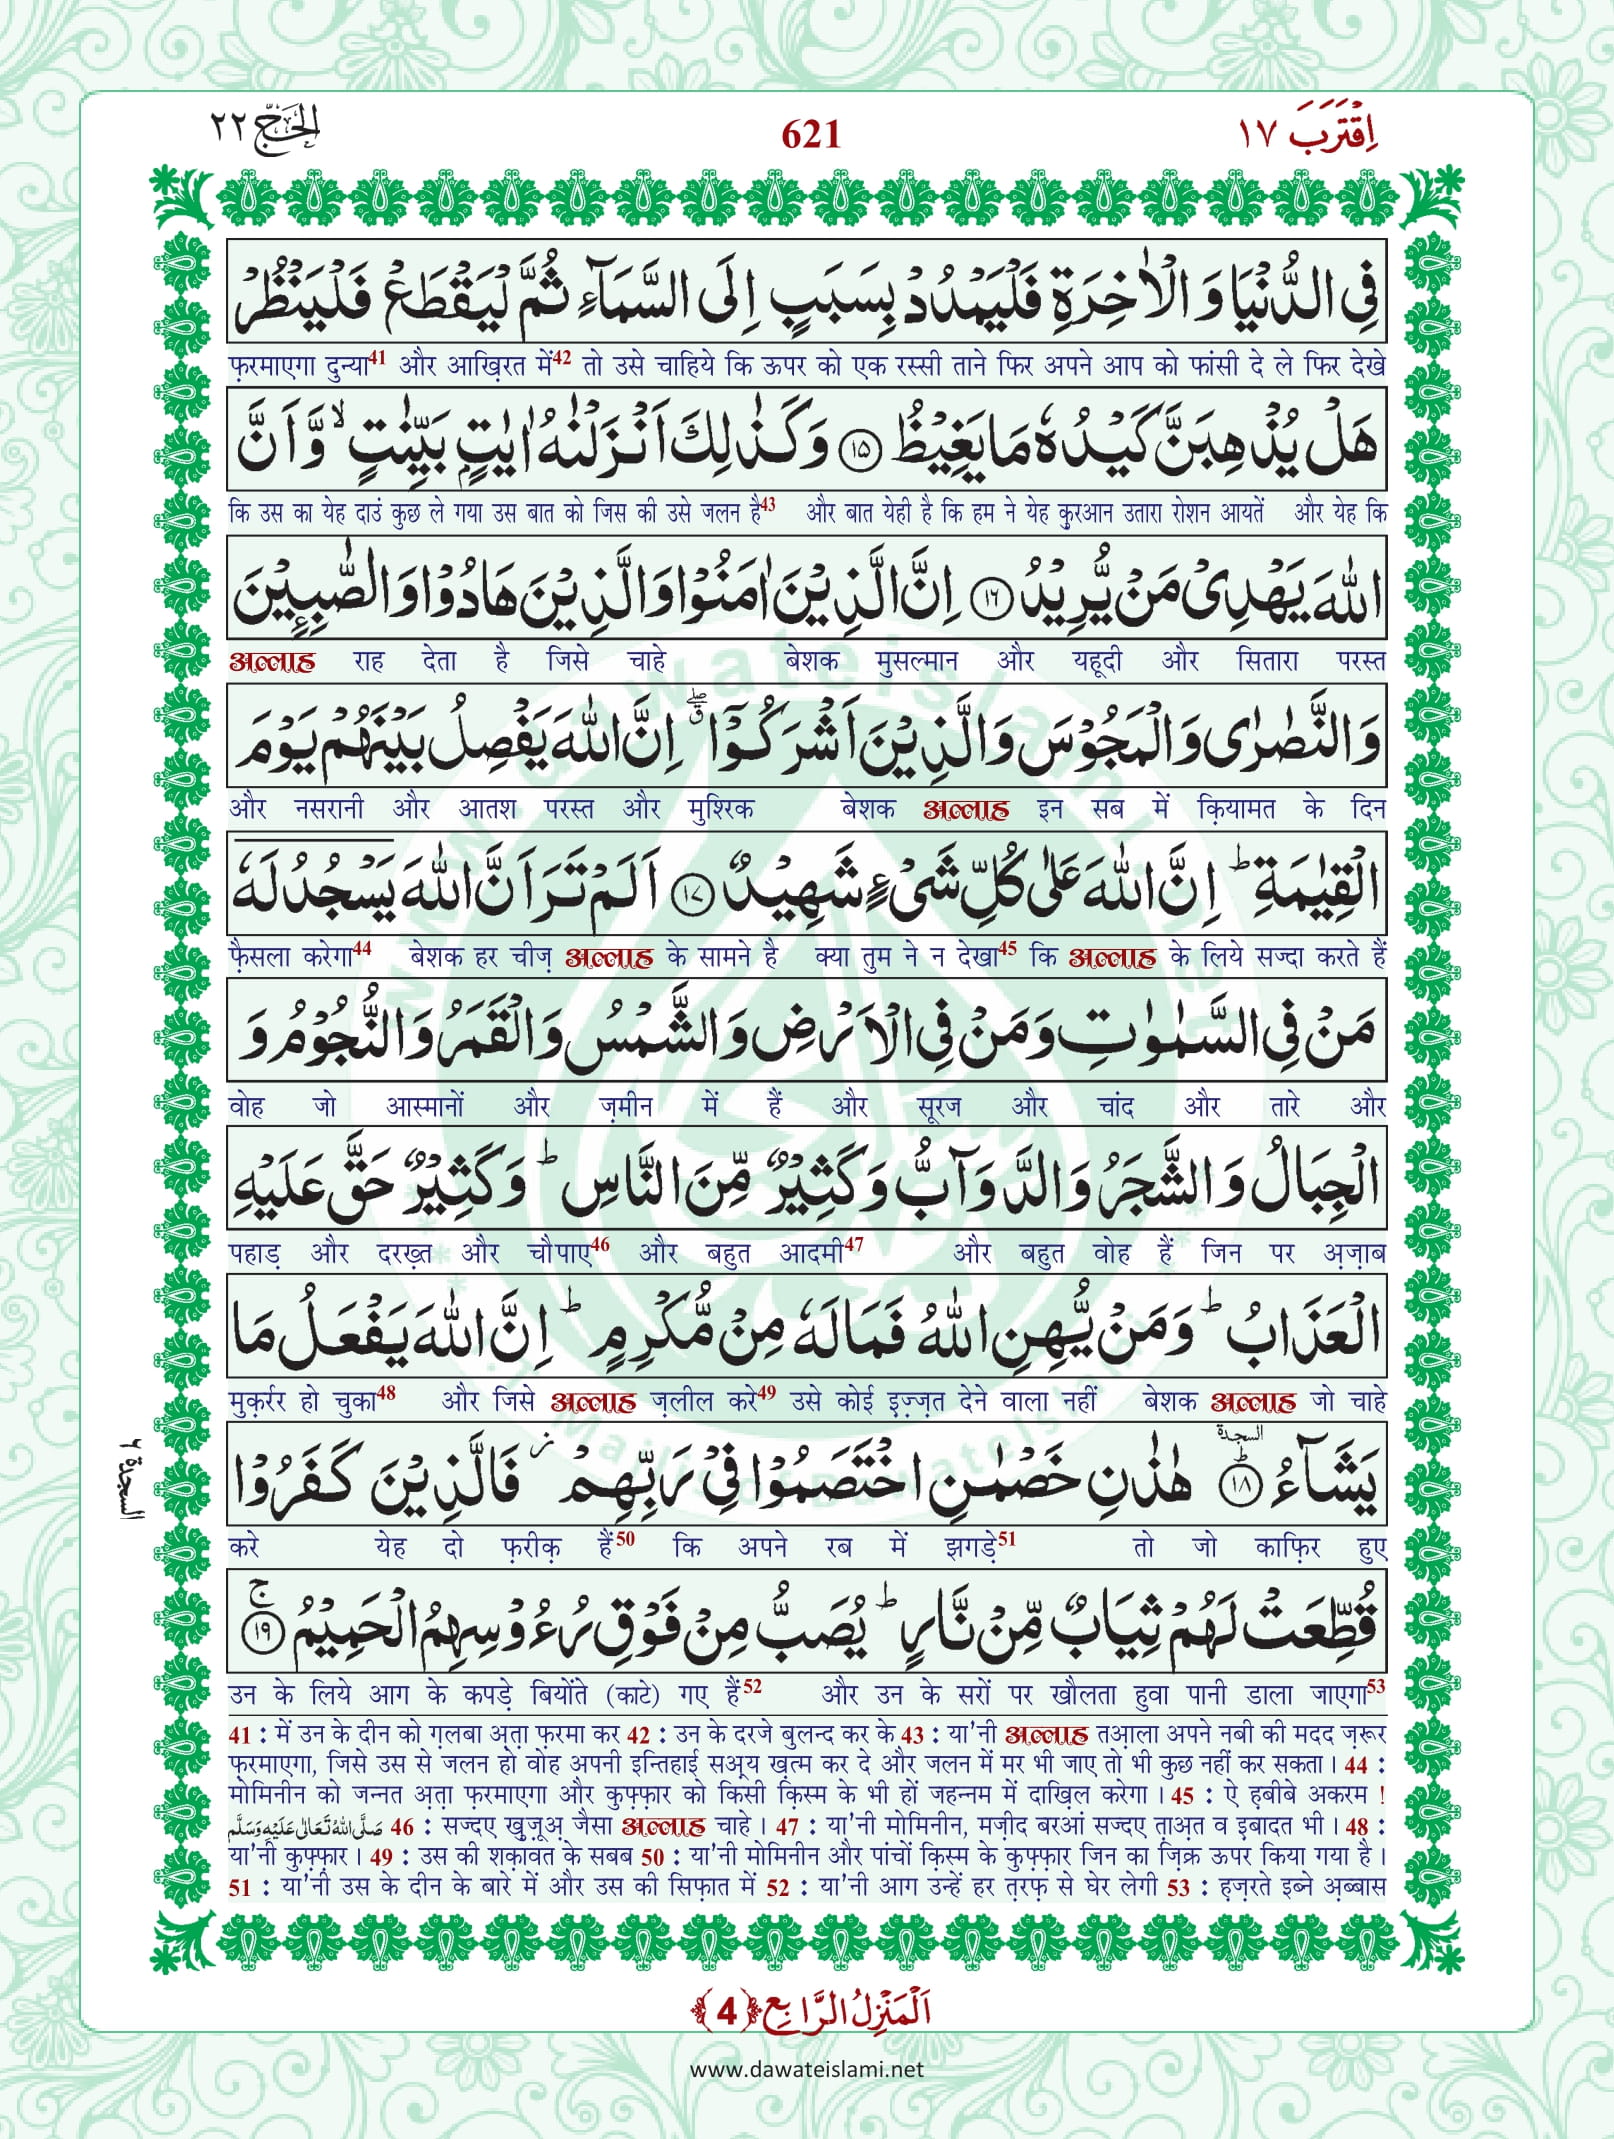 اِقْتَرَبَ ١٧
621
الحَجّ ٢٢
فِی الدُّنْیَا وَ الْاٰخِرَةِ فَلْیَمْدُدْ بِسَبَبٍ اِلَى السَّمَآءِ ثُمَّ لْیَقْطَعْ فَلْیَنْظُرْ
फ़रमाएगा दुन्या41 और आख़िरत में42 तो उसे चाहिये कि ऊपर को एक रस्सी ताने फिर अपने आप को फांसी दे ले फिर देखे
هَلْ یُذْهِبَنَّ كَیْدُهٗ مَا یَغِیْظُ ﴿۱۵﴾ وَ كَذٰلِكَ اَنْزَلْنٰهُ اٰیٰتٍۭ بَیِّنٰتٍ ۙ وَّ اَنَّ
कि उस का येह दाउं कुछ ले गया उस बात को जिस की उसे जलन है43 और बात येही है कि हम ने येह कुरआन उतारा रोशन आयतें और येह कि
اللّٰهَ یَهْدِیْ مَنْ یُّرِیْدُ ﴿۱۶﴾ اِنَّ الَّذِیْنَ اٰمَنُوْا وَ الَّذِیْنَ هَادُوْا وَ الصّٰبِـِٕیْنَ
अल्लाह राह देता है जिसे चाहे बेशक मुसल्मान और यहूदी और सितारा परस्त
وَ النَّصٰرٰى وَ الْمَجُوْسَ وَ الَّذِیْنَ اَشْرَكُوْۤا ۖۗ اِنَّ اللّٰهَ یَفْصِلُ بَیْنَهُمْ یَوْمَ
और नसरानी और आतश परस्त और मुश्रिक बेशक अल्लाह इन सब में क़ियामत के दिन
الْقِیٰمَةِ ؕ اِنَّ اللّٰهَ عَلٰى كُلِّ شَیْءٍ شَهِیْدٌ ﴿۱۷﴾ اَلَمْ تَرَ اَنَّ اللّٰهَ یَسْجُدُ لَهٗ
फ़ैसला करेगा44 बेशक हर चीज़ अल्लाह के सामने है क्या तुम ने न देखा45 कि अल्लाह के लिये सज्दा करते हैं
مَنْ فِی السَّمٰوٰتِ وَ مَنْ فِی الْاَرْضِ وَ الشَّمْسُ وَ الْقَمَرُ وَ النُّجُوْمُ وَ
वोह जो आस्मानों और ज़मीन में हैं और सूरज और चांद और तारे और
الْجِبَالُ وَ الشَّجَرُ وَ الدَّوَآبُّ وَ كَثِیْرٌ مِّنَ النَّاسِ ؕ وَ كَثِیْرٌ حَقَّ عَلَیْهِ
पहाड़ और दरख़्त और चौपाए46 और बहुत आदमी47 और बहुत वोह हैं जिन पर अ़ज़ाब
الْعَذَابُ ؕ وَ مَنْ یُّهِنِ اللّٰهُ فَمَا لَهٗ مِنْ مُّكْرِمٍ ؕ اِنَّ اللّٰهَ یَفْعَلُ مَا
मुक़र्रर हो चुका48 और जिसे अल्लाह ज़लील करे49 उसे कोई इ़ज़्ज़त देने वाला नहीं बेशक अल्लाह जो चाहे
یَشَآءُ ؕ﴿۱۸﴾ السجدة هٰذٰنِ خَصْمٰنِ اخْتَصَمُوْا فِیْ رَبِّهِمْ ز فَالَّذِیْنَ كَفَرُوْا
السجدة ٦
करे येह दो फ़रीक़ हैं50 कि अपने रब में झगड़े51 तो जो काफ़िर हुए
قُطِّعَتْ لَهُمْ ثِیَابٌ مِّنْ نَّارٍ ؕ یُصَبُّ مِنْ فَوْقِ رُءُوْسِهِمُ الْحَمِیْمُ ۚ﴿۱۹﴾
उन के लिये आग के कपड़े बियोंते (काटे) गए हैं52 और उन के सरों पर खौलता हुवा पानी डाला जाएगा53
41 : में उन के दीन को ग़लबा अ़ता फ़रमा कर 42 : उन के दरजे बुलन्द कर के 43 : या'नी अल्लाह तआ़ला अपने नबी की मदद ज़रूर
फ़रमाएगा, जिसे उस से जलन हो वोह अपनी इन्तिहाई सअ़्य ख़त्म कर दे और जलन में मर भी जाए तो भी कुछ नहीं कर सकता। 44 :
मोमिनीन को जन्नत अ़ता फ़रमाएगा और कुफ़्फ़ार को किसी क़िस्म के भी हों जहन्नम में दाख़िल करेगा। 45 : ऐ ह़बीबे अकरम !
صَلَّى اللّٰهُ تَعَالٰى عَلَيْهِ وَسَلَّم 46 : सज्दए ख़ुज़ूअ़ जैसा अल्लाह चाहे। 47 : या'नी मोमिनीन, मज़ीद बरआं सज्दए त़ाअ़त व इ़बादत भी। 48 :
या'नी कुफ़्फ़ार। 49 : उस की शक़ावत के सबब 50 : या'नी मोमिनीन और पांचों क़िस्म के कुफ़्फ़ार जिन का ज़िक्र ऊपर किया गया है।
51 : या'नी उस के दीन के बारे में और उस की सिफ़ात में 52 : या'नी आग उन्हें हर त़रफ़ से घेर लेगी 53 : ह़ज़रते इब्ने अ़ब्बास
اَلْمَنْزِلُ الرَّابِع ﴿4﴾
www.dawateislami.net